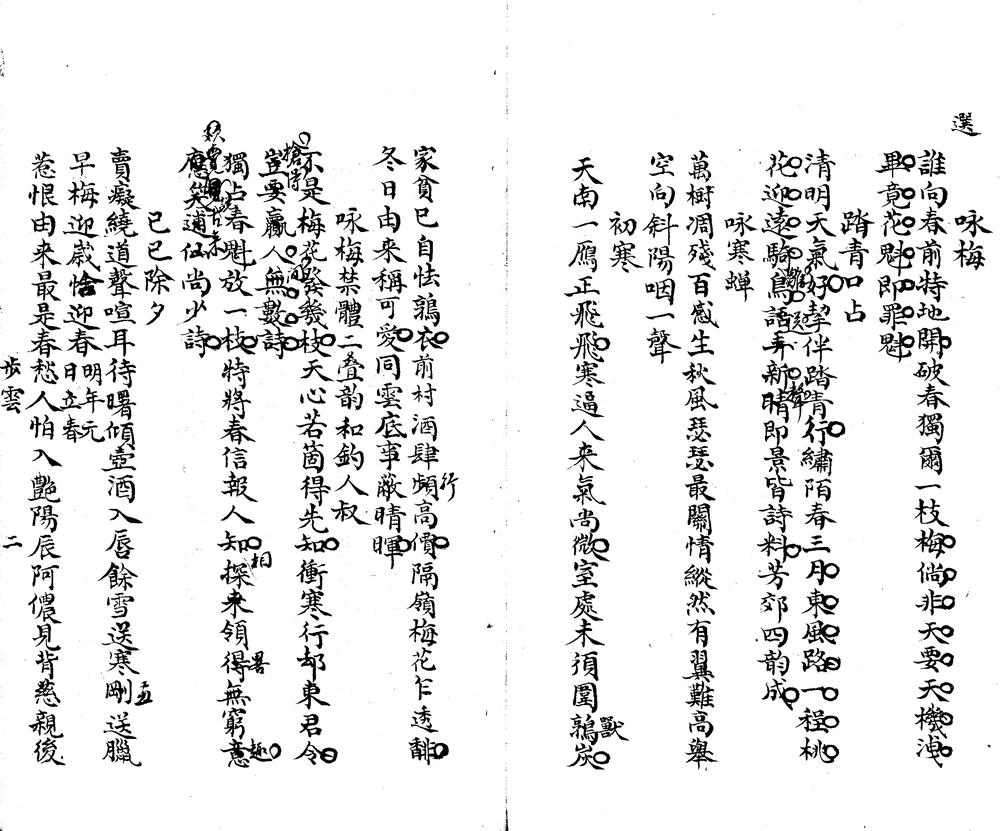 選
咏梅
誰向春前特地開破春獨爾一枝梅倘非天要天機洩
畢竟花魁即罪魁
踏青口占
清明天氣好挈伴踏青行繡陌春三月東風路一程桃
花迎遠騎鳥語弄新晴即景皆詩料芳郊四韵成
咏寒蟬
萬樹凋殘百感生秋風瑟瑟最關情縱然有翼難高舉
空向斜陽咽一聲
初寒
天南一鴈正飛飛寒逼人来氣尚微室處未須圍獸炭
家貧已自怯鶉衣前村酒肆頻高價隔嶺梅花乍透馡
行
冬日由来稱可愛同雲底事蔽晴暉
咏梅禁體二叠韵和釣人叔
不是梅花發幾枝天心若箇得先知衝寒行却東君令
豈要贏人無數詩
獨占春魁放一枝特將春信報人知探来領得無窮意
相
畧
趣
應笑逋仙尚少詩
己巳除夕
賣癡繞道聲喧耳待曙傾壺酒入唇餘雪送寒剛送臘
五
早梅迎歲恰迎春明年元日立春
惹恨由来最是春愁人怕入艷陽辰阿儂見背慈親後
步雲
二